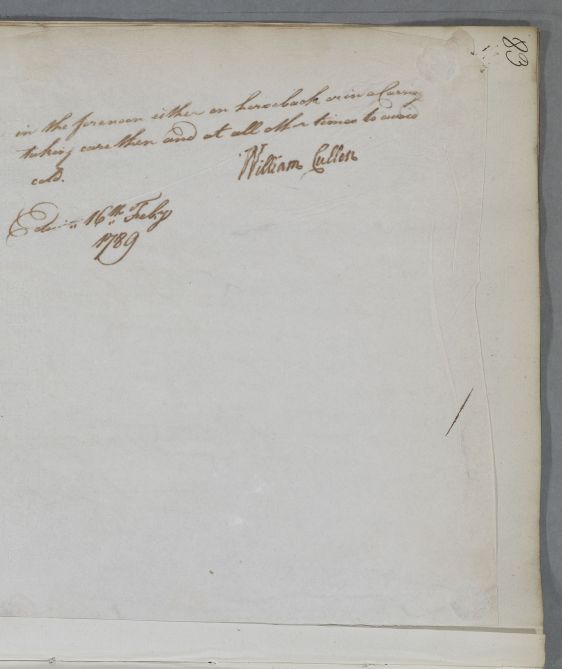 83
in the forenoon either on horseback or in a Carriage
taking care then and at all other times to avoid
cold.
William Cullen
Edinr. 16th. Feby
1789